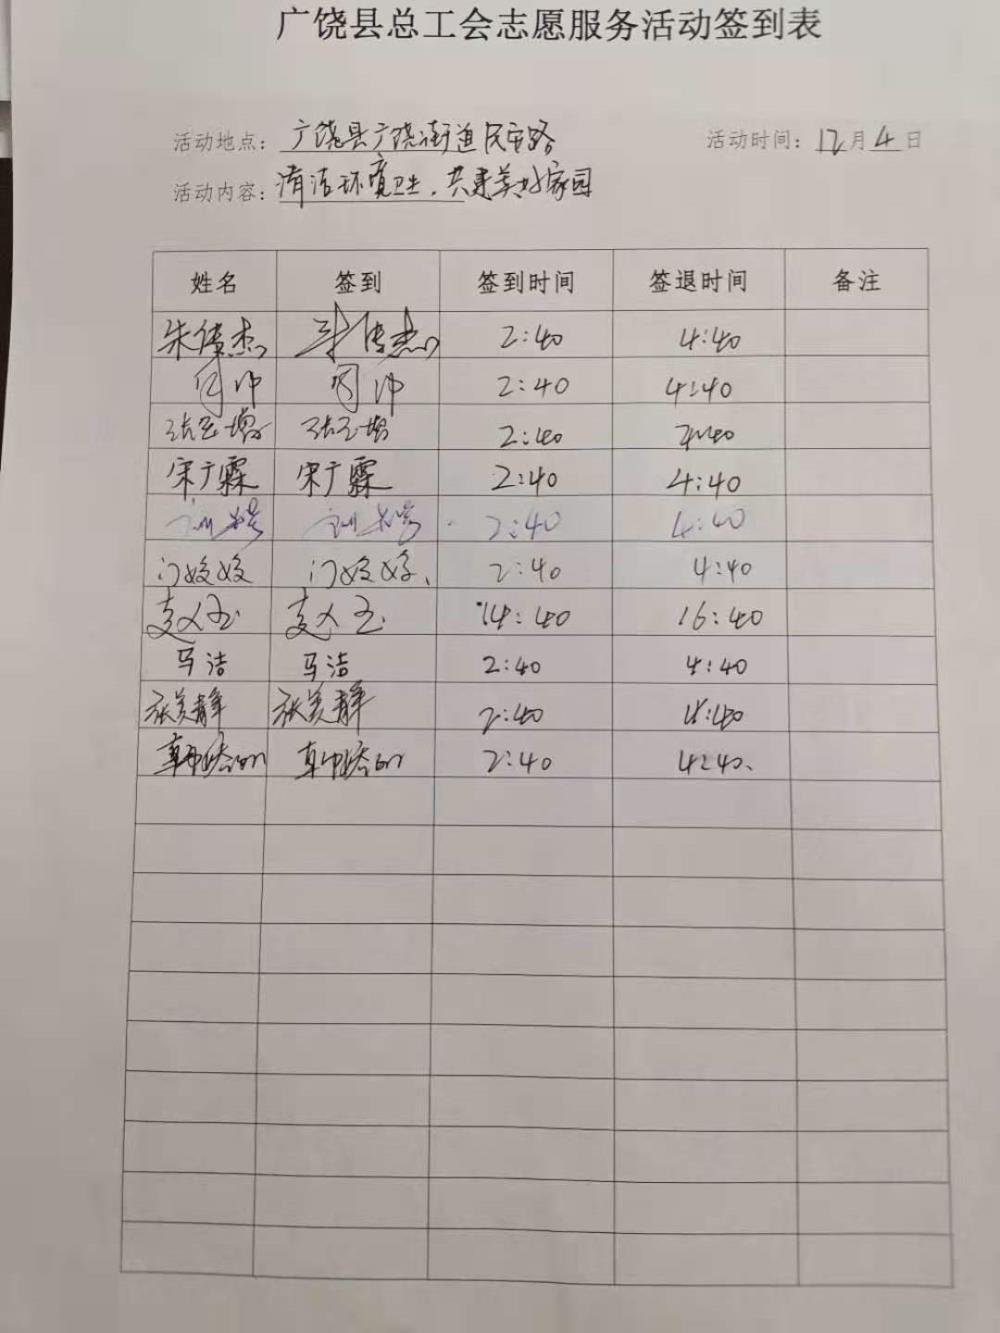 广饶县总工会志愿服务活动签到表
活动地点：广饶县广饶街道民安路 活动时间：12月4日
活动内容：清洁环境卫生，共建美好家园
姓名 签到 签到时间 签退时间 备注
朱传杰 朱传杰 2:40 4:40
周冲 周冲 2:40 4:40
张玉增 张玉增 2:40
宋广霖 宋广霖 2:40 4:40
2:40 4:40
门姣姣 门姣姣 2:40 4:40
14:40 16:40
马洁 马洁 2:40 4:40
张美静 张美静 2:40 4:40
2:40 4:40